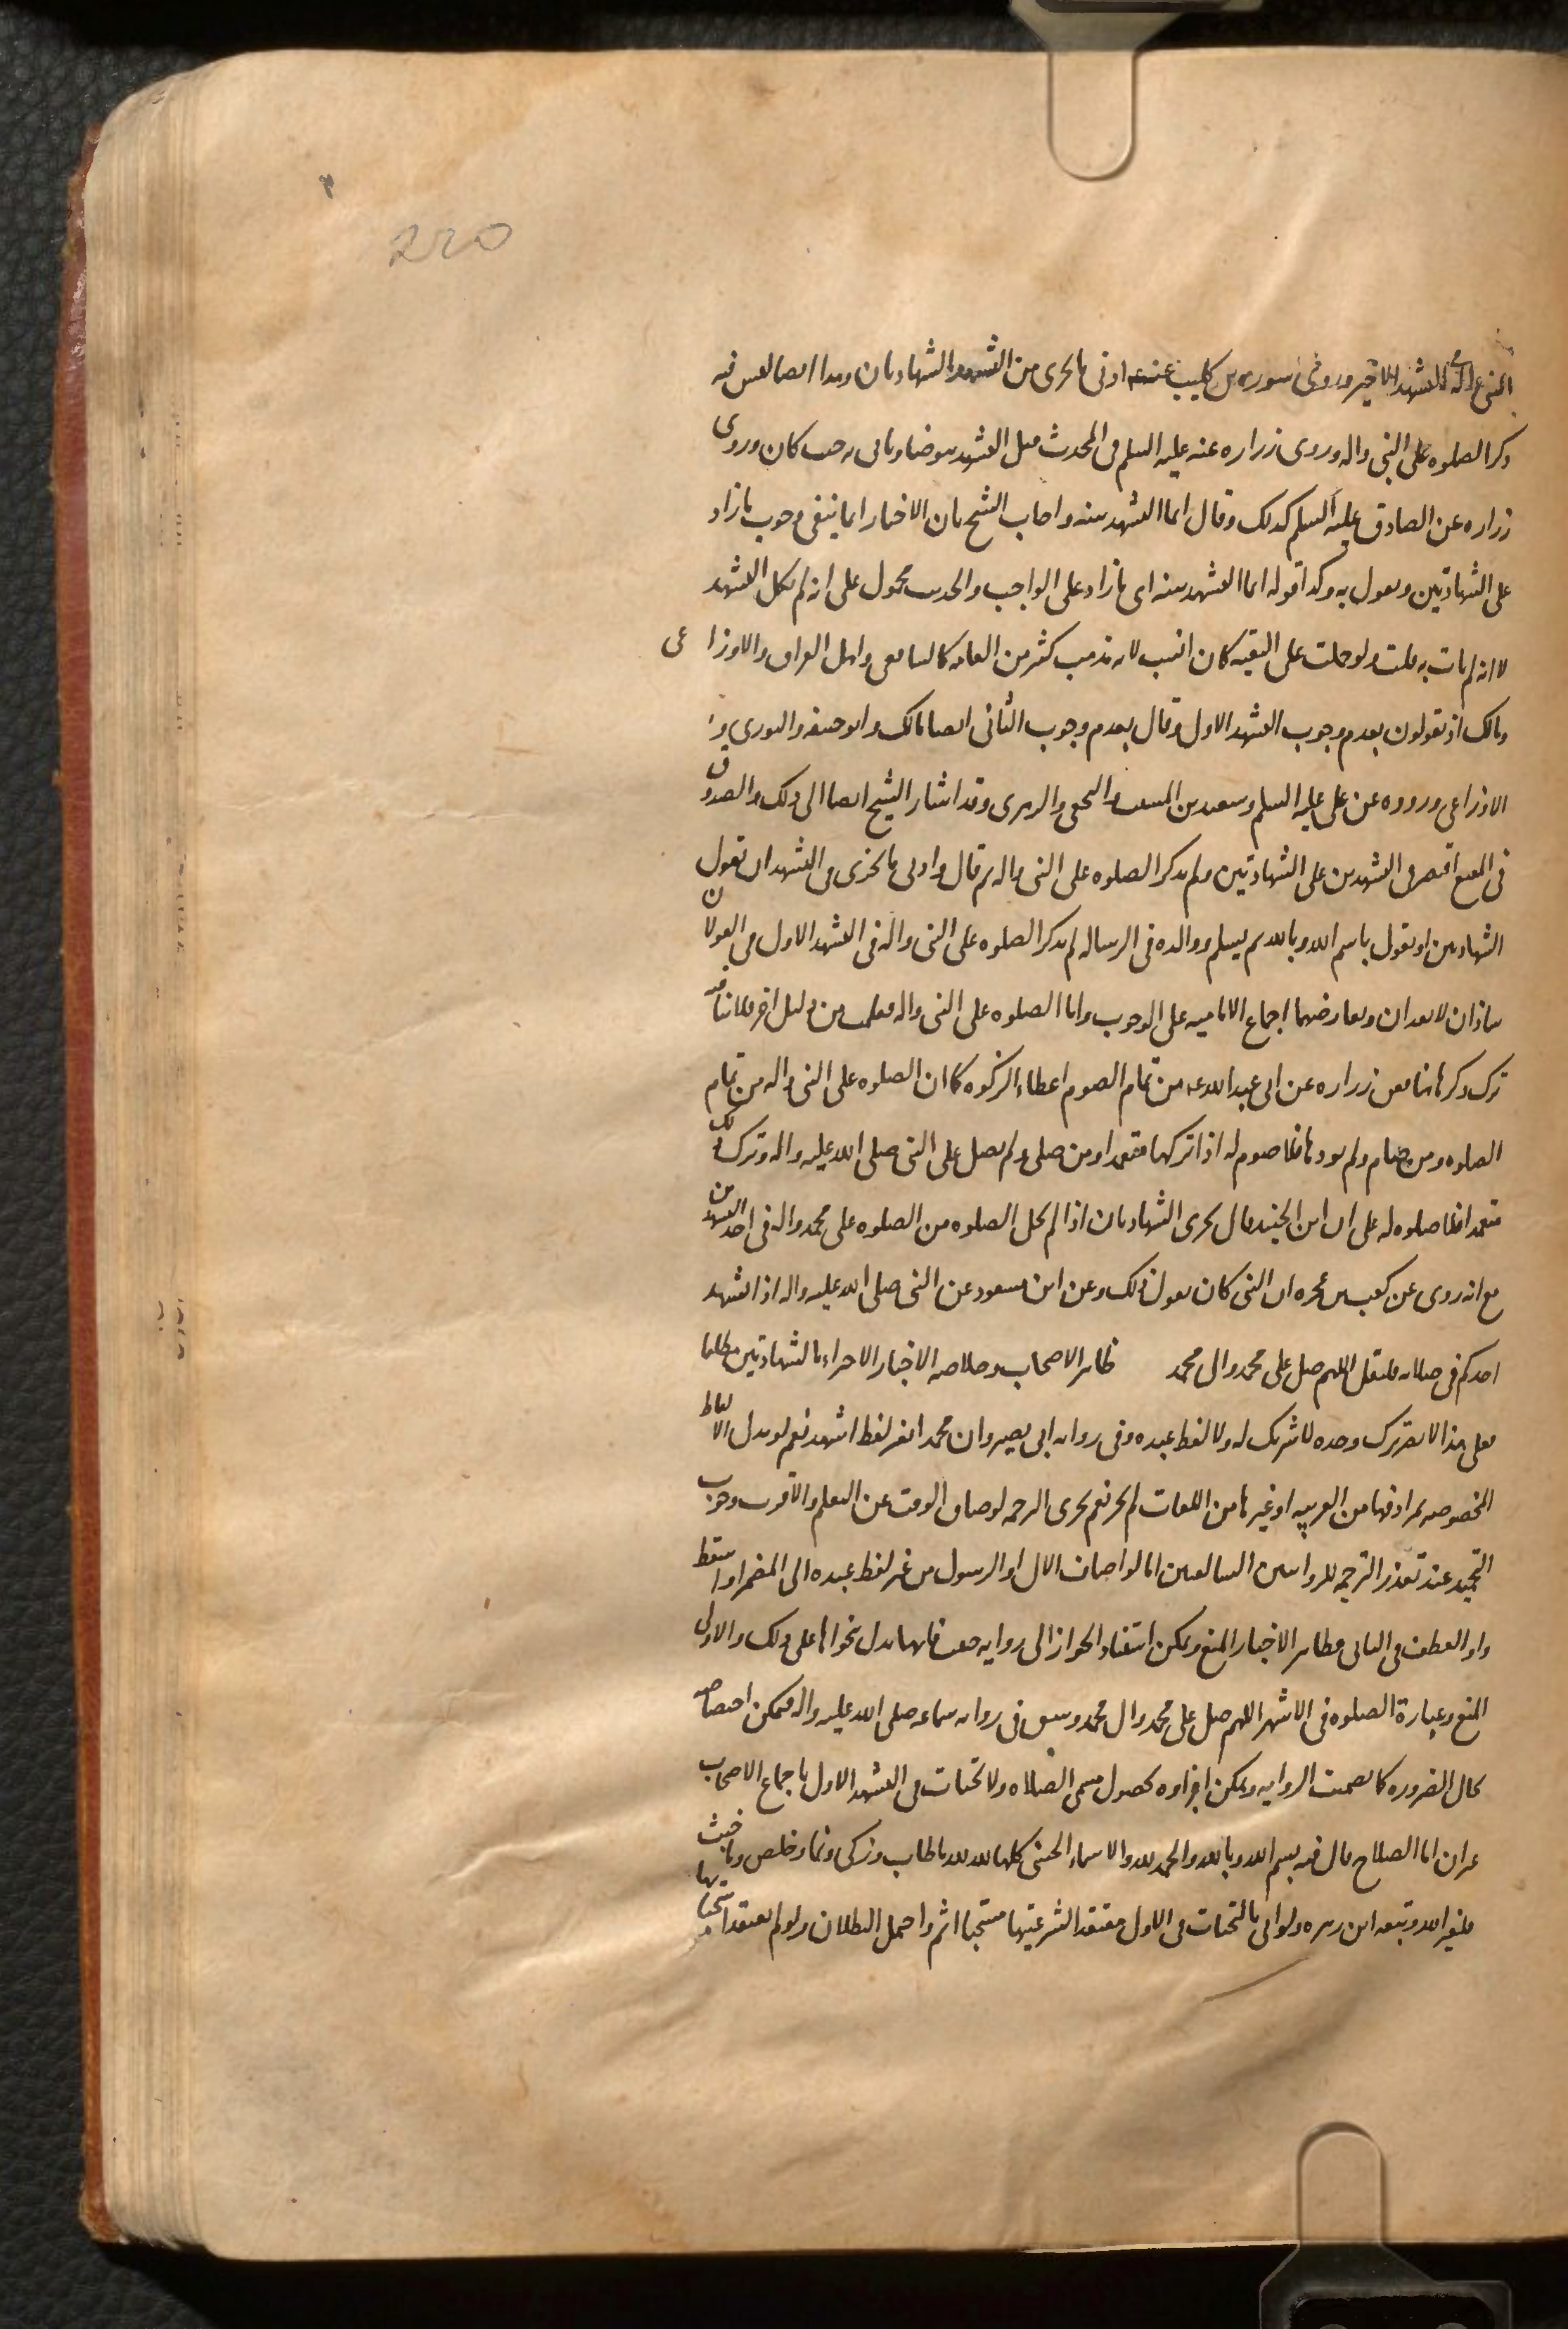 220
النبى واله فى التشهد الاخير وروى سوره بن كليب عنه ادنى ما يجزى من التشهد الشهادتان وهذا ايضا ليس فيه
ذكر الصلوه على النبى واله وروى زراره عنه عليه السلم فى المحدث قبل التشهد يتوضا وياتى به حيث كان وروى
زراره عن الصادق عليه السلم كذلك وقال انما التشهد سنه واجاب الشيخ بان الاخبار انما ينفى وجوب ما زاد
على الشهادتين ونقول به وكذا قوله انما التشهد سنه اى ما زاد على الواجب والحدث محمول على انه لم يكمل التشهد
لا انه لم يات به قلت ولو حملت على التقيه كان انسب لانه مذهب كثير من العامه كالشافعى واهل العراق والاوزاعى
ومالك اذ يقولون بعدم وجوب التشهد الاول وقال بعدم وجوب الثانى ايضا مالك وابو حنيفه والثورى و
الاوزاعى ورووه عن على عليه السلم وسعيد بن المسيب والنخعى والزهرى وقد اشار الشيخ ايضا الى ذلك والصدوق
فى المقنع اقتصر فى التشهدين على الشهادتين ولم يذكر الصلوه على النبى واله ثم قال وادنى ما يجزى فى التشهد ان تقول
الشهادتين او تقول باسم الله وبالله ثم يسلم ووالده فى الرساله لم يذكر الصلوه على النبى واله فى التشهد الاول فى القولان
شاذان لا يعدان ويعارضهما اجماع الاماميه على الوجوب واما الصلوه على النبى واله من دليل اخر
ترك ذكرها هنا فعن زراره عن ابى عبد الله عه من تمام الصوم اعطاء الزكوه كما ان الصلوه على النبى واله من تمام
الصلوه ومن صام ولم يودها فلا صوم له اذا تركها متعمدا ومن صلى ولم يصل على النبى صلى الله عليه واله وترك ذلك
متعمدا فلا صلوه له على ان ابن الجنيد قال يجزى الشهادتان اذا لم يخل الصلوه من الصلوه على محمد واله فى احد التشهدين
مع انه روى عن كعب بن عجره ان النبى كان يقول ذلك وعن ابن مسعود عن النبى صلى الله عليه واله اذا تشهد
احدكم فى صلاته فليقل اللهم صل على محمد وال محمد ظاهر الاصحاب وخلاصه الاخبار الاجزاء بالشهادتين مطلقا
فعلى هذا لا يضر ترك وحده لا شريك له ولا لفظ عبده وفى روايه ابى بصير وان محمدا بغير لفظ اشهد نعم لو بدل الالفاظ
المخصوصه بمرادفها من العربيه او غيرها من اللغات لم يجز نعم يجزى الترجمه لو ضاق الوقت عن التعلم والاقرب وجوب
التحميد عند تعذر الترجمه للروايتين السالفتين اما لو اضاف الال او الرسول من غير لفظ عبده الى المضمر او اسقط
واو العطف فى الثانى فظاهر الاخبار المنع ويمكن استناد الجواز الى روايه فانها تدل بفحواها على ذلك والاولى
المنع وعبارة الصلوه فى الاشهر اللهم صل على محمد وال محمد وسبق فى روايه سماعه صلى الله عليه واله فيمكن اختصاصه
بحال الضروره كما تضمنته الروايه ويمكن اجزاوه لحصول مسمى الصلاه ولا تحيات فى التشهد الاول باجماع الاصحاب
غير ان ابا الصلاح قال فيه بسم الله وبالله والحمد لله والاسماء الحسنى كلها لله لله ما طاب وزكى ونما وخلص وما خبث
فلغير الله وتبعه ابن زهره ولو اتى بالتحيات فى الاول معتقدا لشرعيتها مستحبا اثم واحتمل البطلان ولو لم يعتقد استحبابها